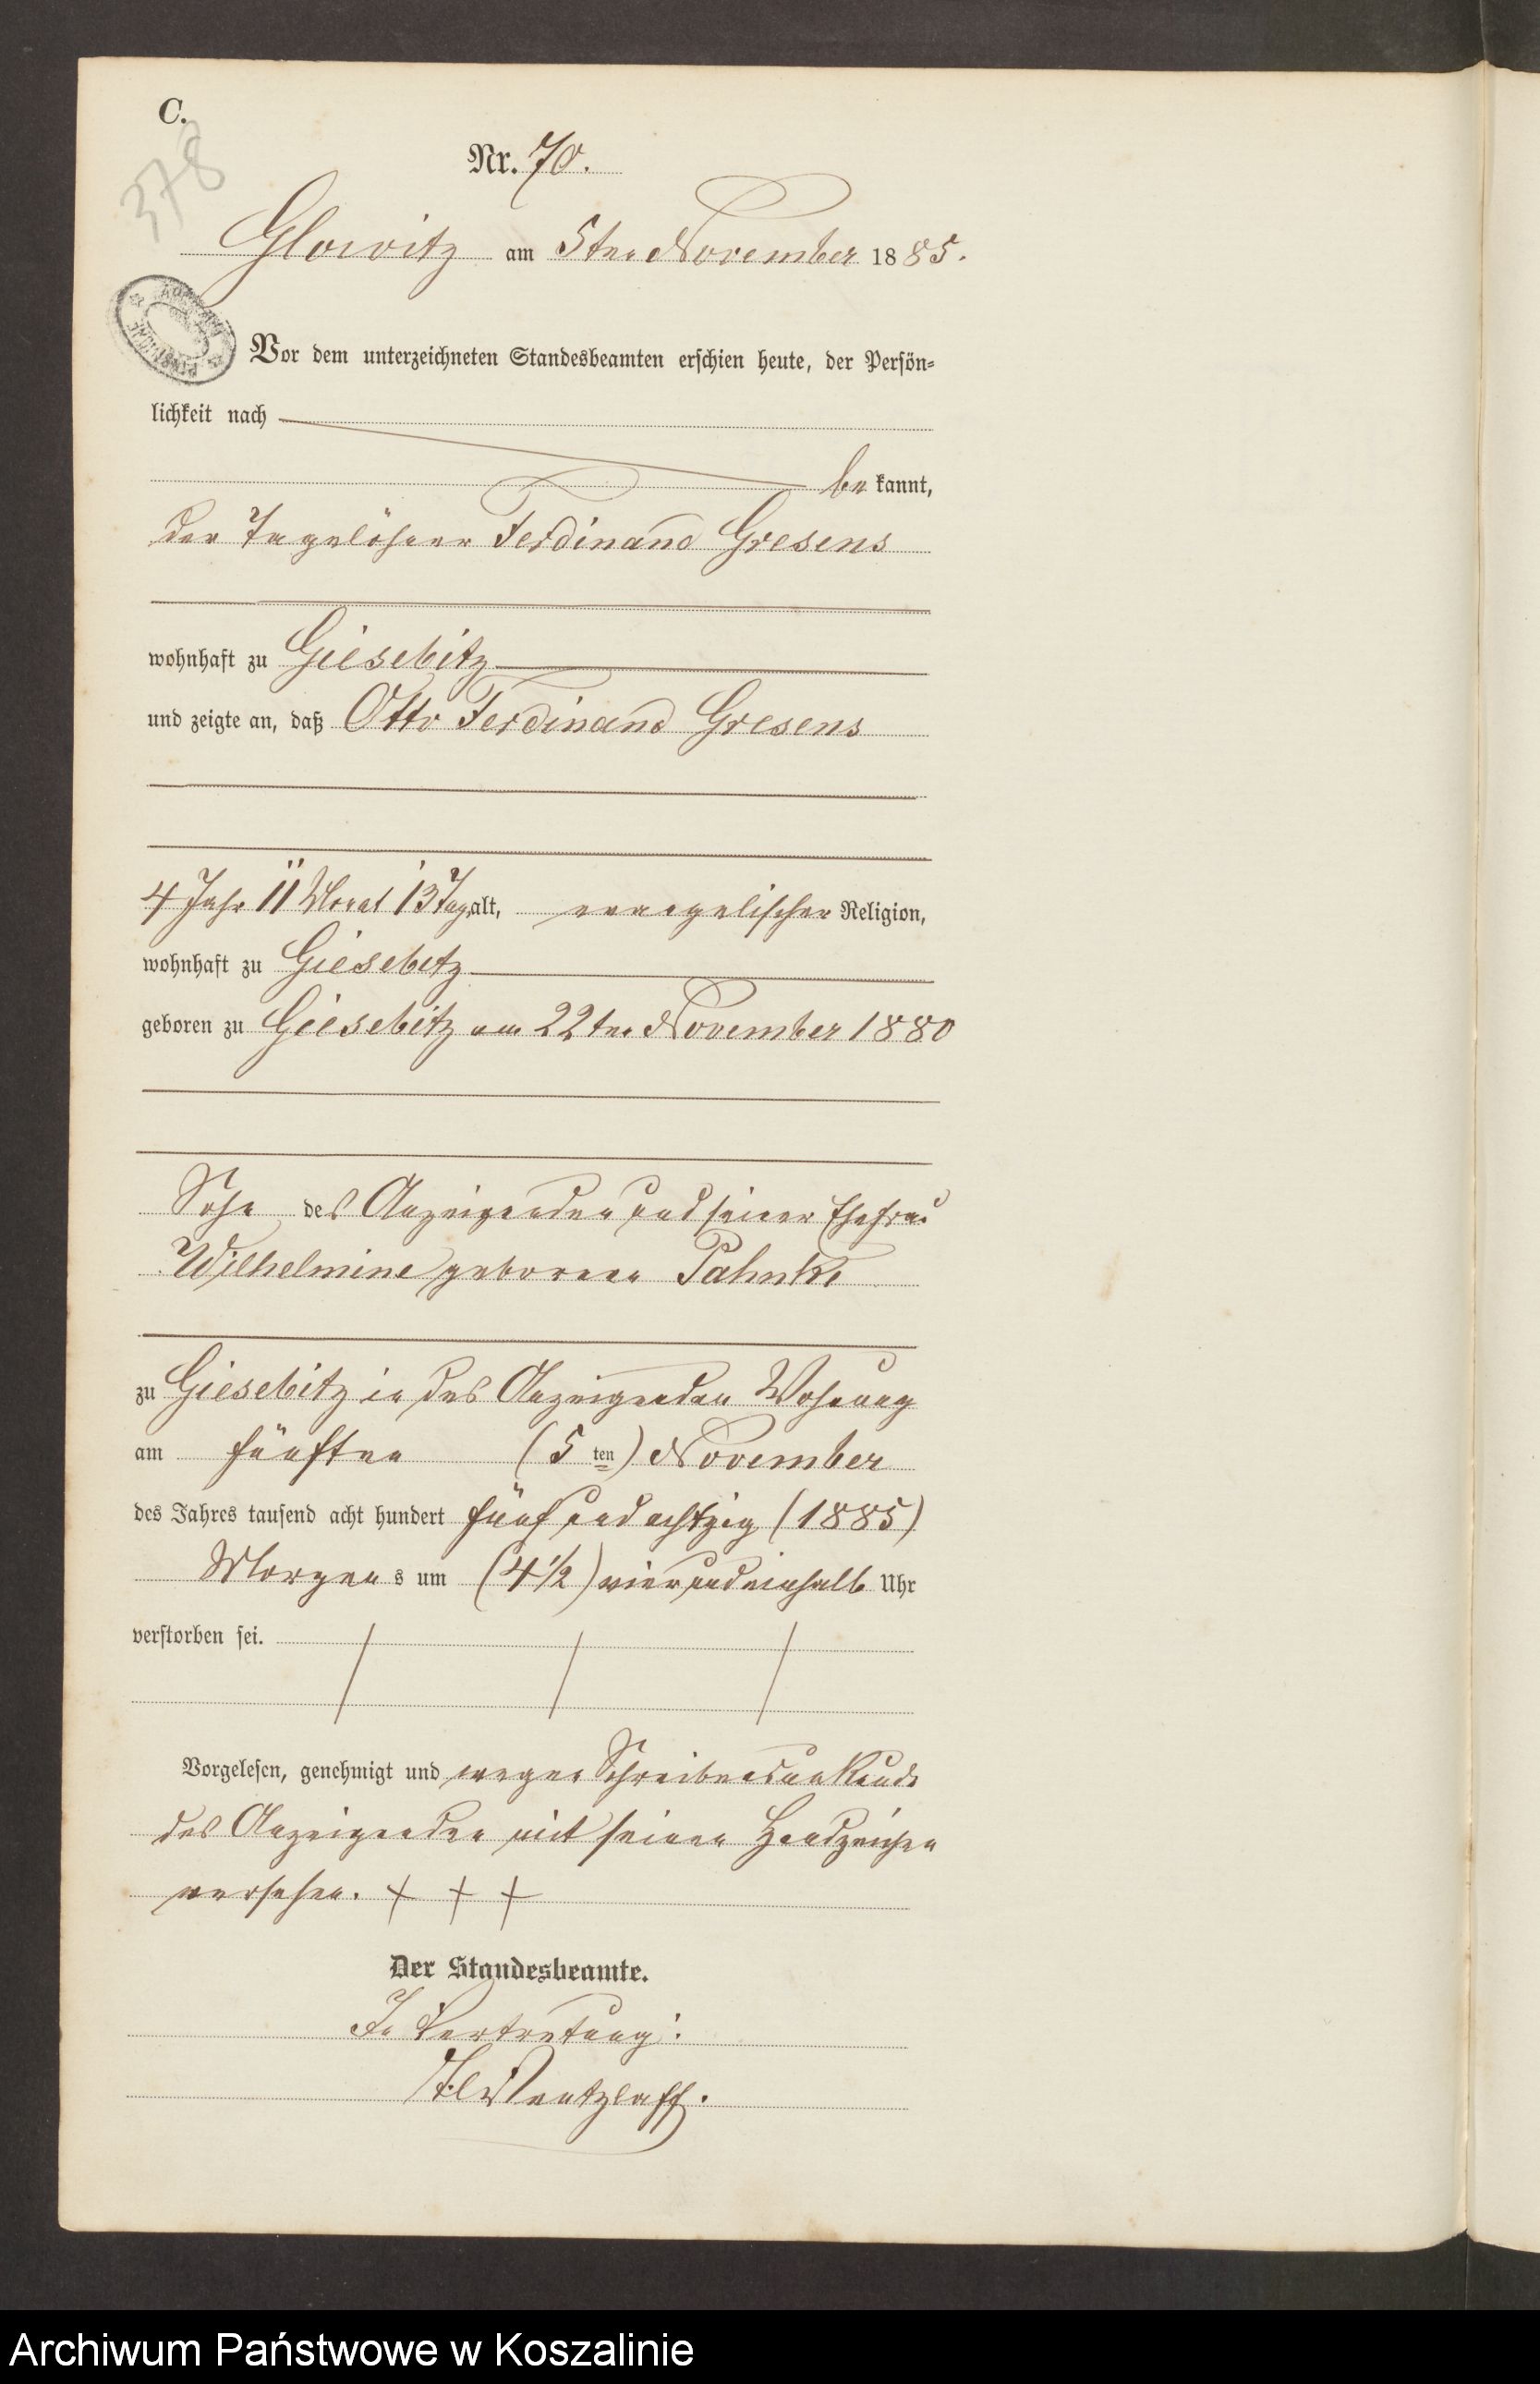 C.
378
Nr. 70.
Glowitz am 5ten November 1885.
Vor dem unterzeichneten Standesbeamten erschien heute, der Persön-
lichkeit nach
be kannt,
der Tagelöhner Ferdinand Gresens
wohnhaft zu Giesebitz
und zeigte an, daß Otto Ferdinand Gresens
4 Jahr 11 Monat 13 Tag alt, evangelischer Religion,
wohnhaft zu Giesebitz
geboren zu Giesebitz am 22ten November 1880
Sohn des Anzeigenden und seiner Ehefrau
Wilhelmine geborenen Pahnke
zu Giesebitz in des Anzeigenden Wohnung
am fünften (5 ten) November
des Jahres tausend acht hundert fünf und achtzig (1885)
Morgen s um (4 1/2) vier und einhalb Uhr
verstorben sei.
Vorgelesen, genehmigt und wegen Schreibensunkunde
des Anzeigenden mit seinen Handzeichen
versehen. + + +
Der Standesbeamte.
In Vertretung:
Wentzlaff.
Archiwum Państwowe w Koszalinie